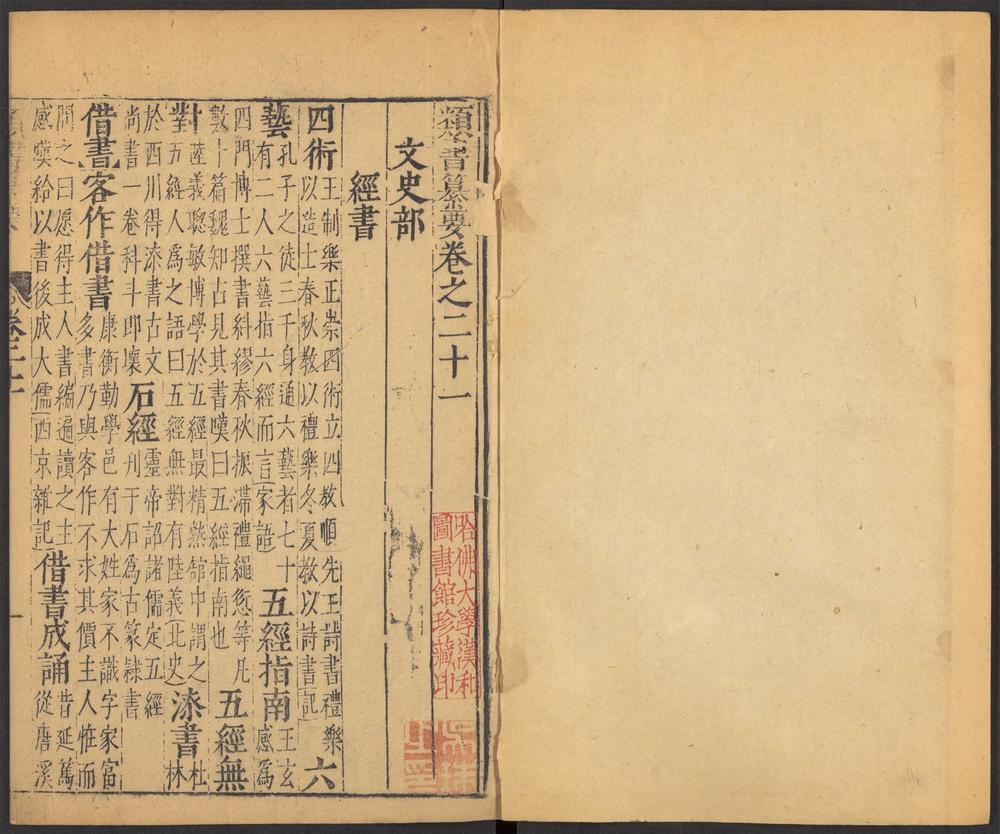 類書纂要卷之二十一
哈佛大學漢和
圖書館珍藏印
文史部
經書
四術王制樂正崇四術立四教順先王詩書禮樂以造士春秋教以禮樂冬夏教以詩書記六
藝孔子之徒三千身通六藝者七十有二人六藝指六經而言家語五經指南王玄感為
四門博士撰書糾繆春秋振滯禮繩愆等凡數十篇魏知古見其書嘆曰五經指南也五經無
對陸義聰敏博學於五經最精熟館中謂之五經人為之語曰五經無對有陸義北史漆書杜林
於西川得漆書古文尚書一卷科斗即壞石經靈帝詔諸儒定五經刋于石為古篆隸書
借書客作借書康衡勤學邑有大姓家不識字家富多書乃與客作不求其價主人惟而
問之曰愿得主人書編遍讀之主感嘆給以書後成大儒西京雜記借書成誦昔延篤從唐溪
卷二十一
一